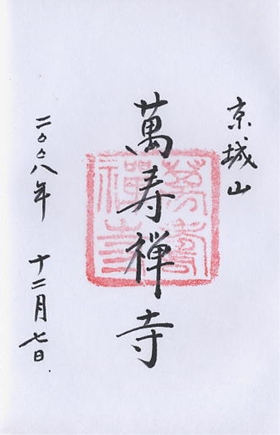 京城山
萬寿禅寺
二〇〇八年 十二月七日.
萬壽禪寺